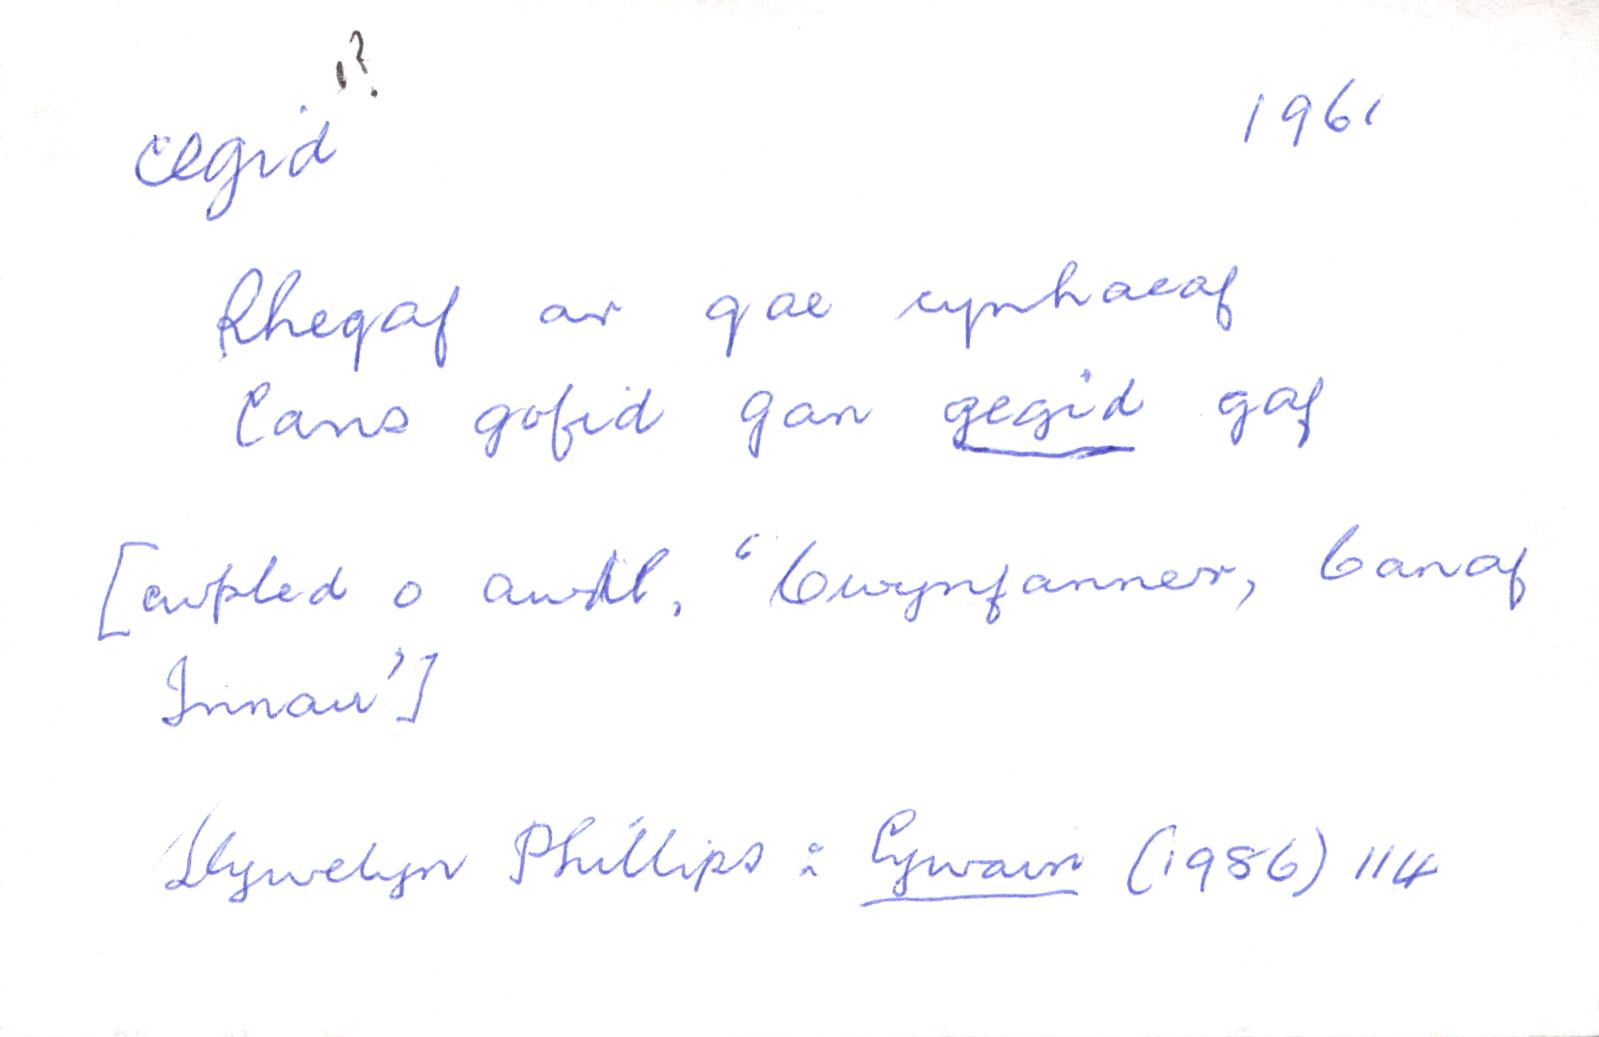 cegid 1? 1961
Rhegaf ar gae cynhaeaf
Cans gofid gan gegid gaf
[cwpled o awdl, 'Cwynfanner, Canaf
Innau']
Llywelyn Phillips : Cywain (1986) 114